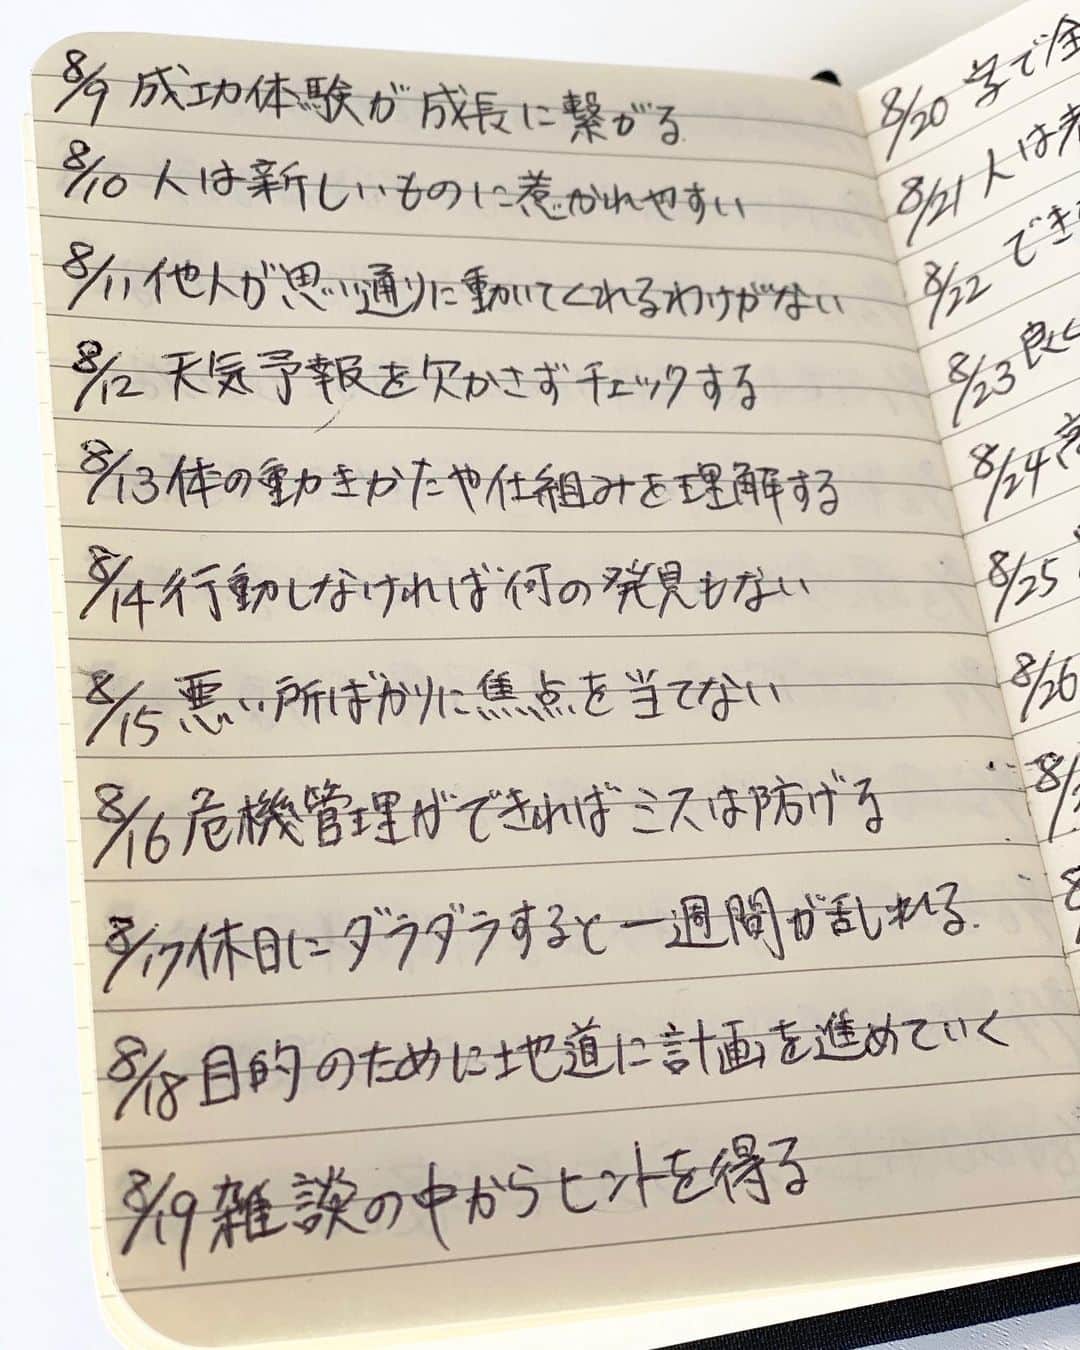 8/9 成功体験が成長に繋がる.
8/10 人は新しいものに惹かれやすい
8/11 他人が思い通りに動いてくれるわけがない
8/12 天気予報を欠かさずチェックする
8/13 体の動きかたや仕組みを理解する
8/14 行動しなければ何の発見もない
8/15 悪い所ばかりに焦点を当てない
8/16 危機管理ができればミスは防げる
8/17 休日にダラダラすると一週間が乱れる.
8/18 目的のために地道に計画を進めていく
8/19 雑談の中からヒントを得る
8/20 学で全
8/21 人は
8/22 でき
8/23 良く
8/24
8/25
8/26